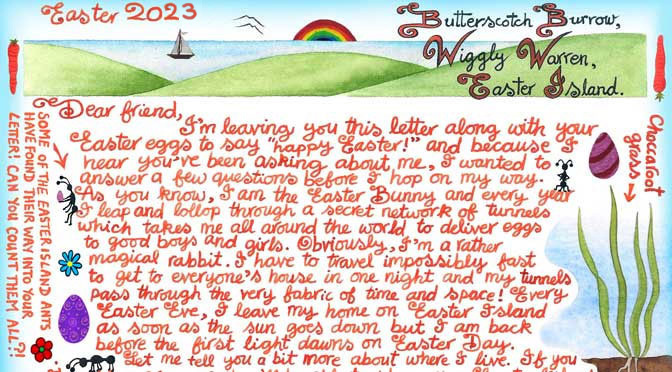 Easter 2023
Butterscotch Burrow,
Wiggly Warren,
Easter Island.
Dear friend,
I'm leaving you this letter along with your
Easter eggs to say "happy Easter!" and because I
hear you've been asking about me, I wanted to
answer a few questions before I hop on my way.
As you know, I am the Easter Bunny and every year
I leap and lollop through a secret network of tunnels
which takes me all around the world to deliver eggs
to good boys and girls. Obviously, I'm a rather
magical rabbit. I have to travel impossibly fast
to get to everyone's house in one night and my tunnels
pass through the very fabric of time and space! Every
Easter Eve, I leave my home on Easter Island
as soon as the sun goes down but I am back
before the first light dawns on Easter Day.
Let me tell you a bit more about where I live. If you
SOME OF THE EASTER ISLAND ANTS
HAVE FOUND THEIR WAY INTO YOUR
LETTER! CAN YOU COUNT THEM ALL?!
Chocolatoof
grass